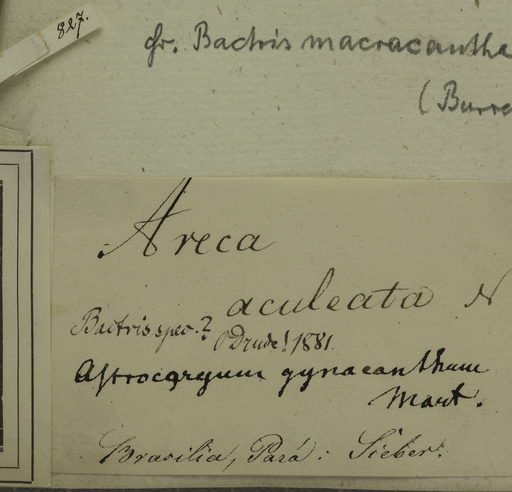 827.
fr. Bactris macracantha
(Burre
Areca
aculeata N
Bactris spec.?
O Drude! 1881.
Astrocaryum gynacanthum
Mart.
Brasilia, Pará: Sieber.